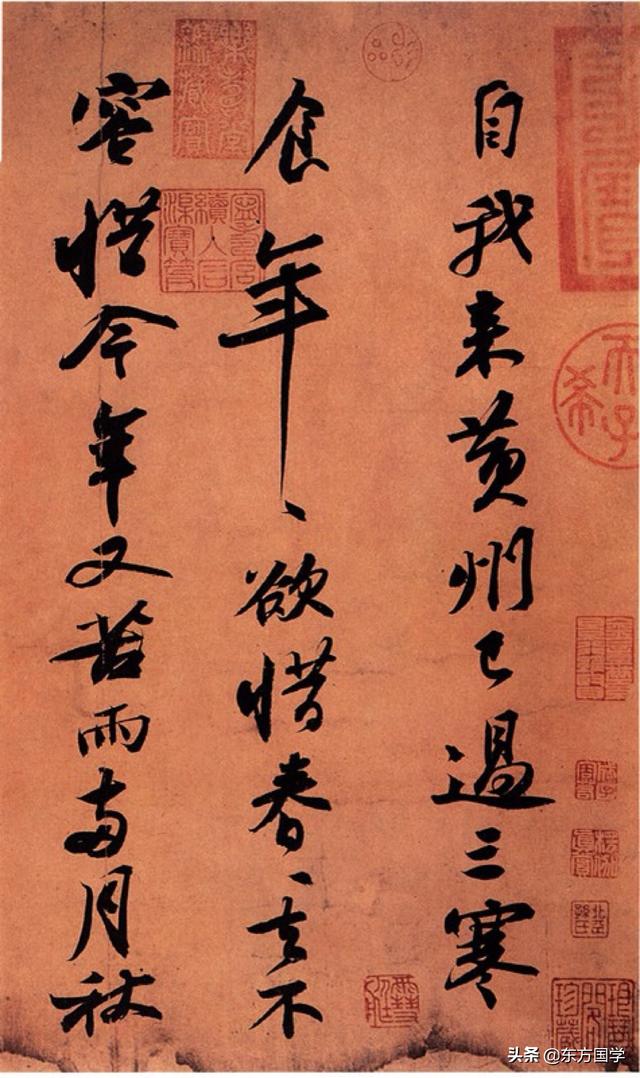 自我来黄州已過三寒
食年〻欲惜春〻去不
容惜今年又苦雨兩月秋
头条 @东方国学